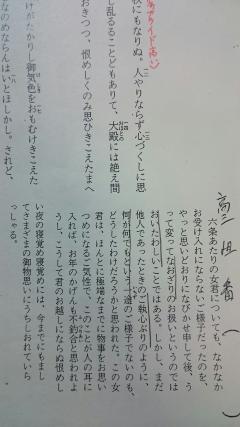 秋にもなりぬ。人やりならず心づくしに思
し乱るることどもありて、大殿には絶え間
おきつつ、恨めしくのみ思ひきこえたまへ
とけがたかりし御気色をおもむけきこえた
なのめならんはいとほしかし。されど、
六条あたりの女君についても、なかなか
お受け入れにならないご様子だったのを、
やっと思いどおりになびかせ申して後、う
って変ってなおざりのお扱いというのでは
おいたわしいことではある。しかし、まだ
他人であったときのご執心ぶりのように、
何が何でもという一途のご様子でないのも、
どうしたわけだろうかと思われた。この女
君は、ほんとに極端なまでに物事をお思い
つめになるご気性で、このことが人の耳に
入れば、お年のかげんも不釣合と思われよ
うし、こうして君のお越しにならぬ恨めし
い夜の寝覚め寝覚めには、今までにもまし
てさまざまの御物思いにうちしおれていら
っしゃる。